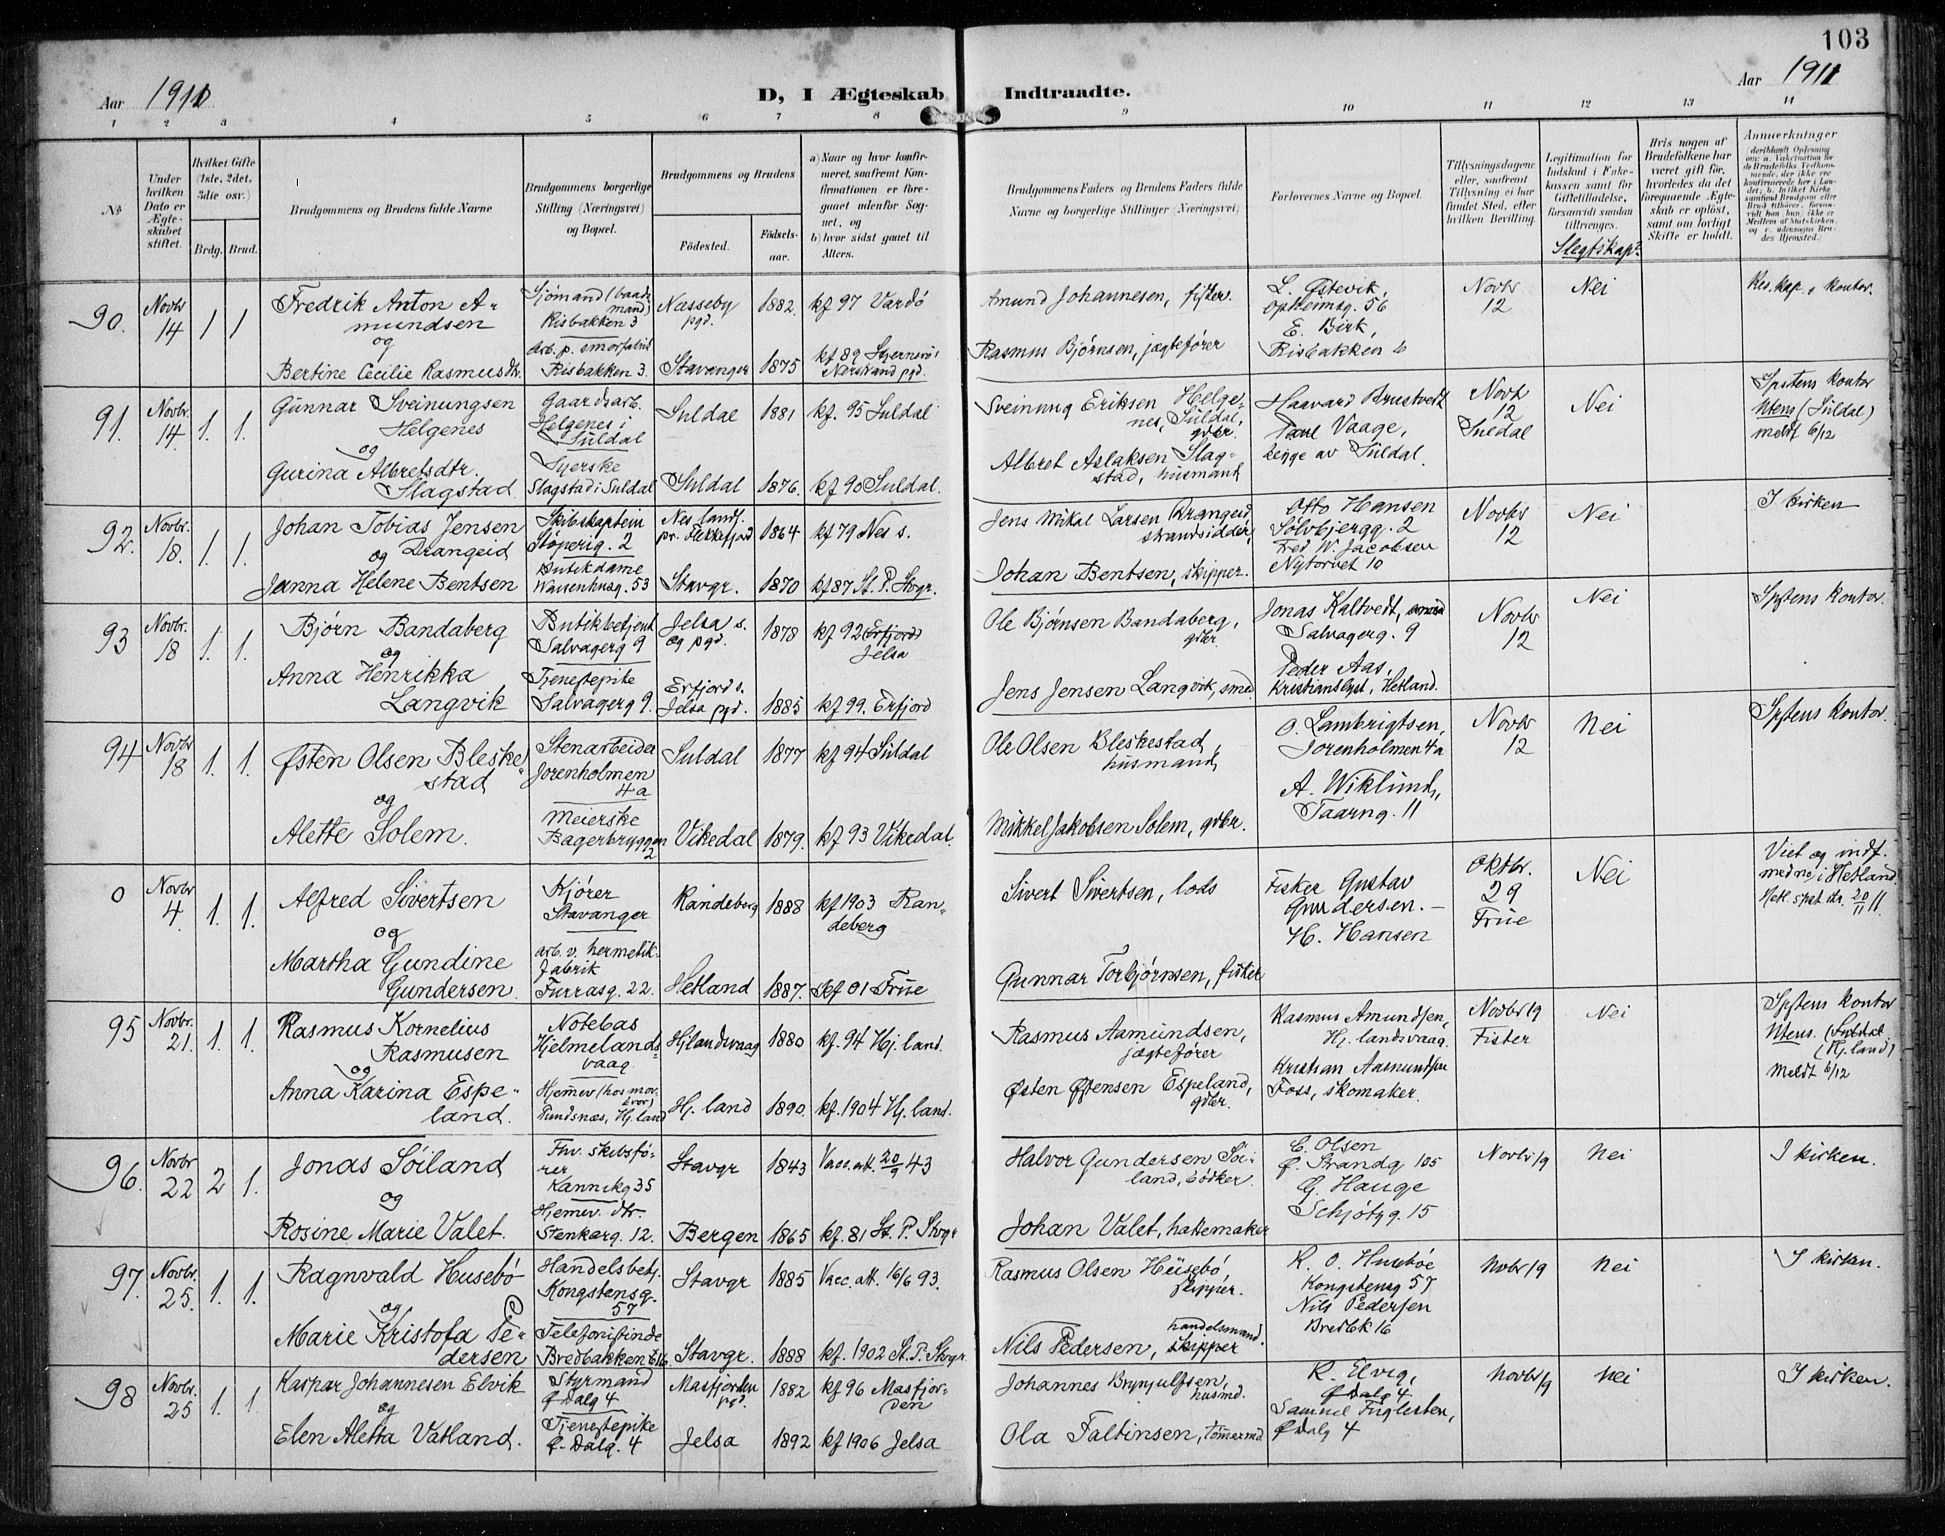 103
Aar 1911
D, I Ægteskab Indtraadte.
Aar 1911
1 2 3 4 5 6 7 8 9 10 11 12 13 14
No
Under hvilken Dato er Ægteskabet stiftet.
Hvilket Gifte (1ste, 2det, 3die osv.)
Brdg. Brud.
Brudgommens og Brudens fulde Navne
Brudgommens borgerlige Stilling (Næringsvei) og Bopæl.
Brudgommens og Brudens
Fødested.
Fødselsaar.
a) Naar og hvor konfirmeret, saafremt Konfirmationen er foregaaet udenfor Sognet, og
b) hvor sidst gaaet til Alters.
Brudgommens Faders og Brudens Faders fulde Navne og borgerlige Stillinger (Næringsvei)
Forlovernes Navne og Bopæl.
Tillysningsdagene eller, saafremt Tillysning ei har fundet Sted, efter hvilken Bevilling.
Legitimation for Indskud i Enkekassen samt for Giftetilladelse, forsaavidt saadan tiltrænges.
Slegtskap?
Hvis nogen af Brudefolkene har været gift før, hvorledes da det foregaaende Ægteskab er opløst, samt om lovligt Skifte er holdt.
Anmerkninger
90. Novbr 14 1 1 Fredrik Anton Amundsen
og
Bertine Cecilie Rasmusdtr.
Sjømand (baadsmand)
Risbakken 3
Arb. p. smørfabrik
Risbakken 3.
Nesseby pgd. 1882. kf 97 Vardø
Stavanger 1875 kf 89 Sjernerø s Nerstrand pgd.
Amund Johannesen, fisker.
Rasmus Bjørnsen, jægtefører
L. Østevik,
Opheimsg. 56
E. Birk,
Risbakken 6
Novbr 12
Nei
91. Novbr. 14 1. 1. Gunnar Sveinungsen Helgenes
og
Gurina Albretsdtr. Slagstad
Gaardsarb.
Helgenes i Suldal
Syerske
Slagstad i Suldal
Suldal 1881 kf. 95 Suldal
Suldal 1876. kf 90 Suldal.
Sveinung Eriksen Helgenes, Suldal, gdbr.
Albret Aslaksen Slagstad, husmand
Haavard Brustvedt
Vaage,
begge av Suldal.
Novbr 12 Suldal
Nei
Spstens kontor
Utens (Suldal)
meldt 6/12
92. Novbr. 18. 1. 1. Johan Tobias Jensen Drangeid
og
Janna Helene Bentsen
Skibskaptein
Støperig. 2
Butikdame
53
Nes lands. pr. Flekkefjord 1864 kf 79 Nes s.
Stavgr. 1870 kf 87 St. P. Stvgr.
Jens Mikal Larsen Drangeid strandsidder,
Johan Bentsen, skipper.
Otto Hansen
Sølvbjergg. 2
Fred W. Jacobsen
Nytorvet 10
Novbr 12
Nei
I kirken
93 Novbr. 18 1. 1. Bjørn Bandaberg
og
Anna Henrikka Langvik
Butikbetjent
Salvagerg 9
Tjenestepike
Salvagerg 9.
Jelsa s. og pgd. 1878 kf 92 (Erfjord) Jelsa
Erfjord s. Jelsa pgd. 1885 kf 99. Erfjord
Ole Bjørnsen Bandaberg, gdbr.
Jens Jensen Langvik, smed.
Jonas Kaltvedt,
Salvagerg. 9
Peder Aas,
Kristianslyst, Hetland.
Novbr 12
Nei
Spstens kontor.
94 Novbr 18 1. 1. Østen Olsen Bleskestad
og
Alette Solem.
Stenarbeider
Jorenholmen 4a
Meierske
Bagerbryggen 2
Suldal 1877 kf 94 Suldal
Vikedal 1879. kf 93 Vikedal.
Ole Olsen Bleskestad, husmand
Mikkel Jakobsen Solem, gdbr.
O. Lambrigtsen,
Jorenholmen 4a
A. Wiklund,
Taarng. 11
Novbr 12
Nei
Spstens kontor.
0 Novbr 4. 1. 1. Alfred Sivertsen
og
Martha Gundine Gundersen.
Kjører
Stavanger
arb. v. hermetik fabrik
Furrasg. 22.
Randeberg 1888 kf 1903 Randeberg
Hetland 1887. kf 01 Frue
Sivert Sivertsen, lods
Gunnar Torbjørnsen, fisker
Fisker Gustav Gundersen. —
H. Hansen
Oktbr. 29 Frue
Nei
Viet og indf. i Hetland
20/11 11.
95 Novbr. 21. 1. 1. Rasmus Kornelius Rasmusen
og
Anna Karina Espeland.
Notebas
Hjelmelandsvaag
Hjemmev (hos
Pundsnes, Hj. land
Hjlandsvaag 1880 kf. 94 Hj. land.
Hj. land 1890. kf. 1904 Hj. land.
Rasmus Aamundsen, jægtefører
Østen Østensen Espeland, gdbr.
Rasmus Amundsen,
Hj. landsvaag.
Kristian Aasmundsen
Foss, skomaker.
Novbr 19 Fister
Nei
Spstens kontor
Utens.
(Hj. land)
Meldt 6/12
96. Novbr 22 2 1. Jonas Söiland
og
Rosine Marie Valet.
Fhv. skibsfører
Kannikg 35
Hjemev. dtr.
Stenkarg. 12.
Stavgr 1843 Vacc. att. 20/9 43
Bergen 1865 kf. 81 St. P. Stvgr
Halvor Gundersen Söiland, bödker.
Johan Valet, hattemaker
C. Olsen
Ø. Strandg 105
G. Hauge
Schjøtzg. 15
Novbr 19
Nei
I kirken.
97. Novbr. 25. 1. 1. Ragnvald Husebö
og
Marie Kristofa Pedersen
Handelsbetj.
Kongstensg. 57
Telefonistinde
Bredbakken 16.
Stavgr 1885 Vacc. att. 16/6 93.
Stavgr. 1888 kf. 1902 St. P. Stvgr.
Rasmus Olsen Husebö skipper.
Nils Pedersen, handelsmand. skipper
R. O. Husebøe
Kongstensg 57
Nils Pedersen
Bredbk 16
Novbr 19
Nei
I kirken.
98 Novbr. 25 1. 1 Kaspar Johannesen Elvik
og
Elen Aletta Vatland.
Styrmand
Ø Dalg 4
Tjenestepike
Ø. Dalg. 4
Masfjorden pgd. 1882 kf 96 Masfjorden
Jelsa 1892 kf 1906 Jelsa
Johannes Brynjulfsen, husmd.
Ola Faltinsen, tømmermd.
R. Elvig,
Ø Dalg 4
Samuel Fuglesten,
Ø Dalg 4
Novbr 19
Nei
I kirken.